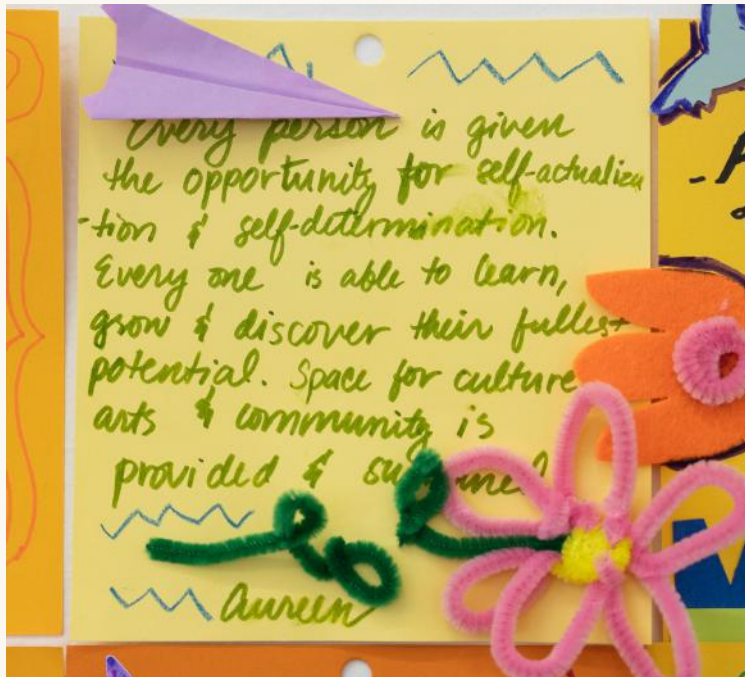 Every person is given
the opportunity for self-actualiza
-tion & self-determination.
Every one is able to learn,
grow & discover their fullest
potential. Space for culture
arts & community is
provided &
Aureen